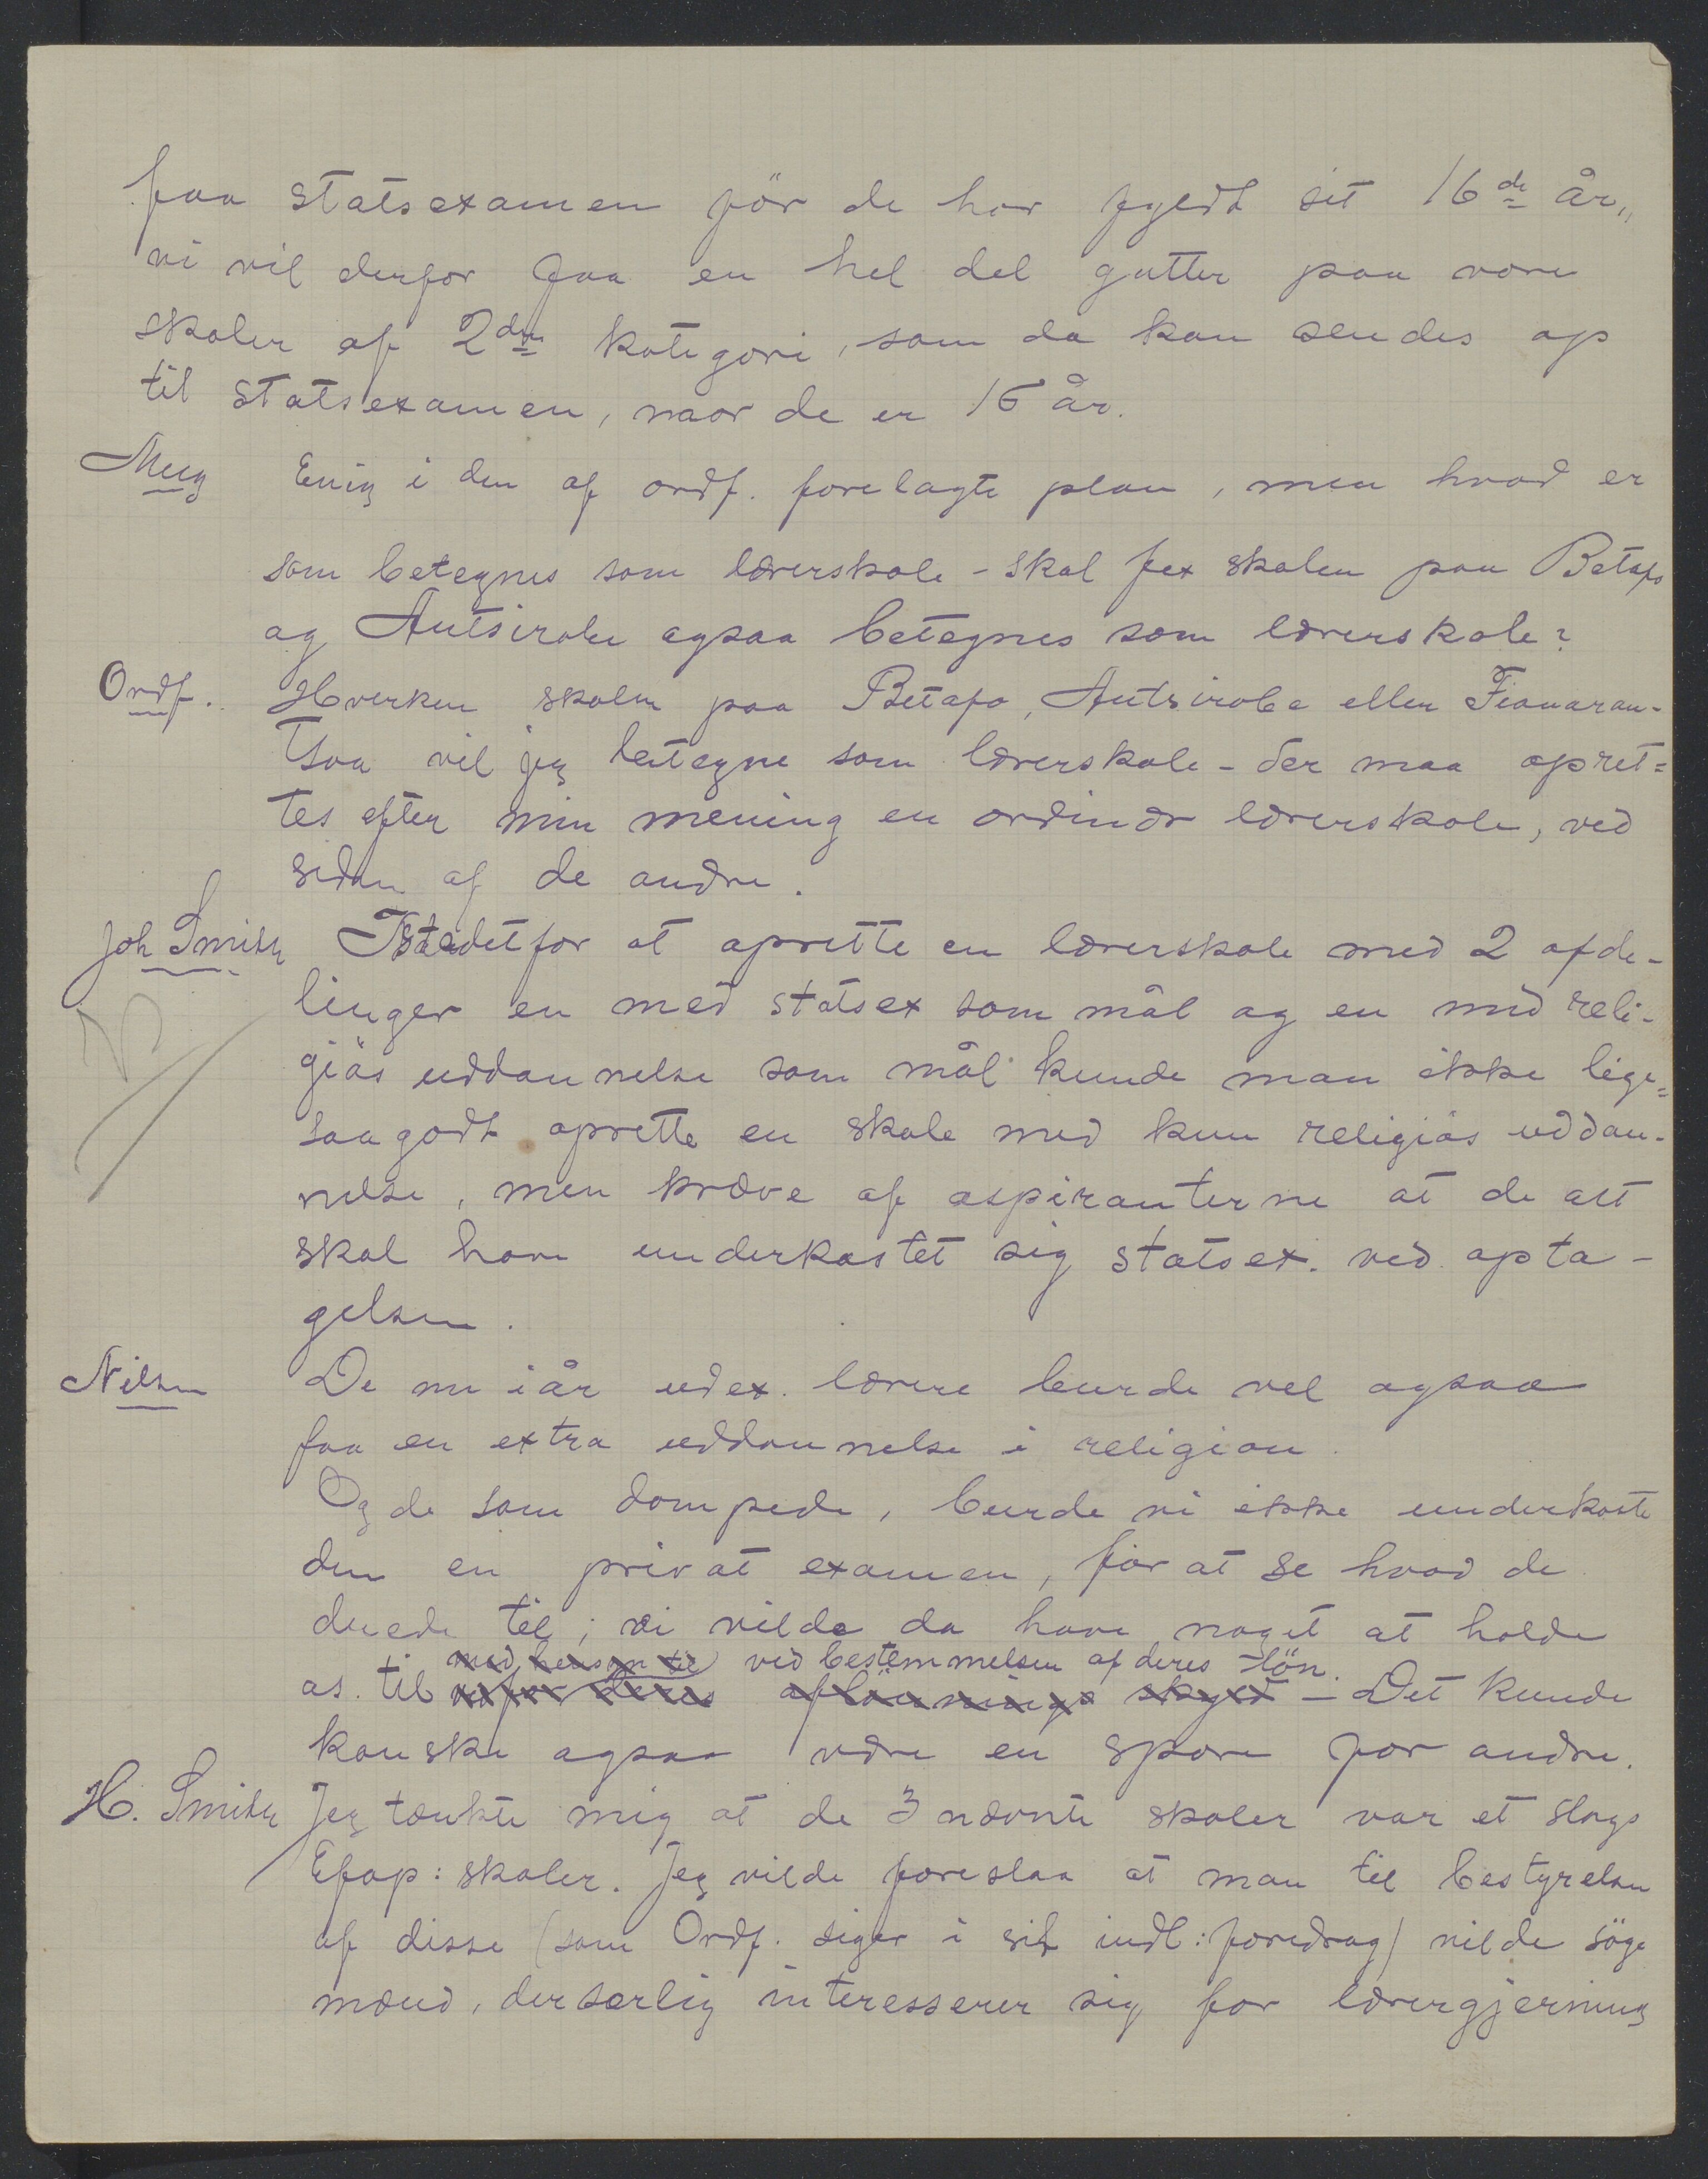 faa statsexamen før de har fyldt sit 16de år,,
vi vil derfor faa en hel del gutter paa vore
skoler af 2den kategori, som da kan sendes op
til statsexamen, naar de er 16 år.
Meeg Enig i den af ordf. forelagte plan, men hvad er
som betegnes som lærerskole - skal fex skolen paa Betafo
og Antsirabe ogsaa betegnes som lærerskole?
Ordf. Hverken skolen paa Betafo, Antsirabe eller Fianaran-
tsoa vil jeg betegne som lærerskole - der maa opret=
tes efter min mening en ordinær lærerskole, ved
siden af de andre.
Joh Smith Istedetfor at oprette en lærerskole med 2 afde-
linger en med statsex som mål og en med reli-
giös uddannelse som mål kunde man ikke lige=
saagodt oprette en skole med kun religiös uddan-
nelse, men kræve af aspiranterne at de alt
skal have underkastet sig statsex. ved opta-
gelsen.
Nilsen De nu iår udex. lærere burde vel ogsaa
faa en extra uddannelse i religion.
Og de som dompede, burde vi ikke underkaste
dem en privat examen, for at se hvad de
duede til; vi vilde da have noget at holde
med hensyn til ved bestemmelsen af deres lön.
os til deres aflönnings - Det kunde
kanske ogsaa være en spore for andre.
H. Smith Jeg tænkte mig at de 3 nævnte skoler var et slags
Efap: skoler. Jeg vilde foreslaa at man til bestyrelsen
af disse (som Ordf. siger i sit indl: foredrag) vilde söge
mænd, der særlig interesserer sig for lærergjerning